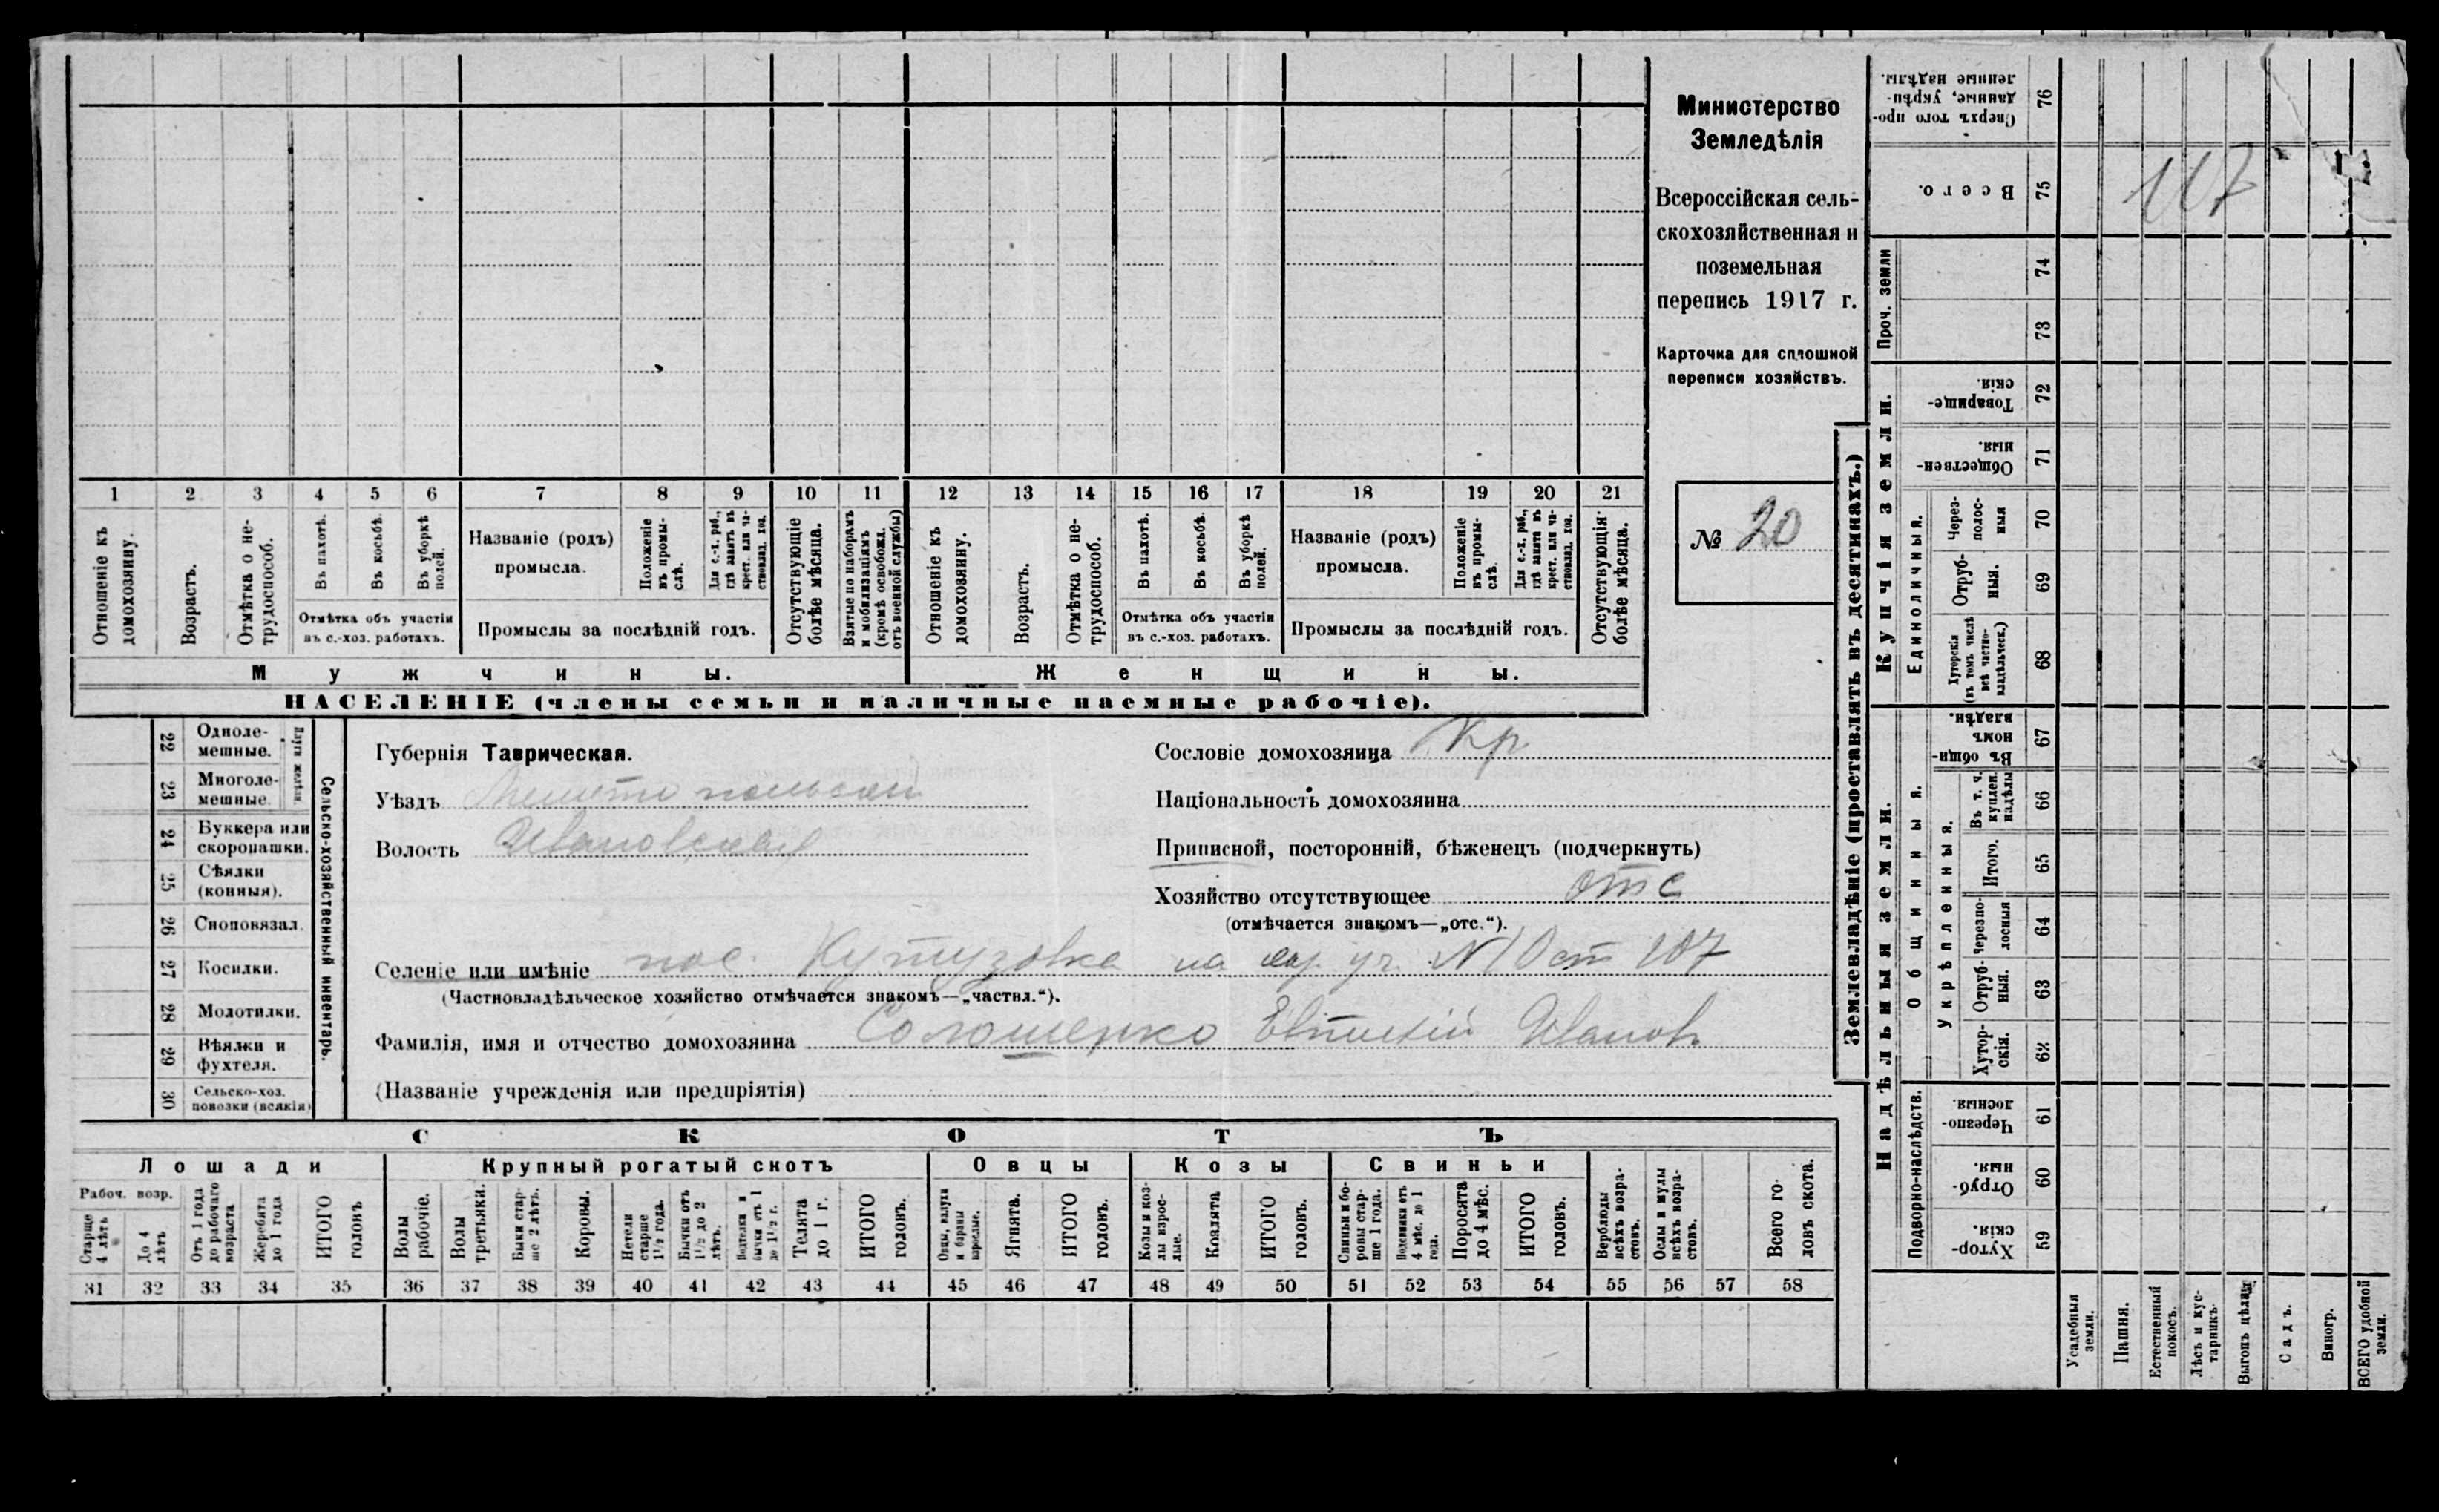 1 2 3 4 5 6 7 8 9 10 11 12 13 14 15 16 17 18 19 20 21
Отношеніе къ домохозяину.
Возрастъ.
Отмѣтка о нетрудоспособ.
Въ пахотѣ.
Въ косьбѣ.
Въ уборкѣ полей.
Отмѣтка объ участіи
въ с.-хоз. работахъ.
Названіе (родъ)
промысла.
Положеніе въ промыслѣ.
Для с.-х. раб., гдѣ занятъ въ крест. или частновлад. хоз.
Промыслы за послѣдній годъ.
Отсутствующіе болѣе мѣсяца.
Взятые по наборамъ и мобилизаціямъ (кромѣ освобожд. отъ военной службы)
Отношеніе къ домохозяину.
Возрастъ.
Отмѣтка о нетрудоспособ.
Въ пахотѣ.
Въ косьбѣ.
Въ уборкѣ полей.
Отмѣтка объ участіи
въ с.-хоз. работахъ.
Названіе (родъ)
промысла.
Положеніе въ промыслѣ.
Для с.-х. раб., гдѣ занята въ крест. или частновлад. хоз.
Промыслы за послѣдній годъ.
Отсутствующія болѣе мѣсяца.
Мужчины.
Женщины.
НАСЕЛЕНІЕ (члены семьи и наличные наемные рабочіе).
Министерство
Земледѣлія
Всероссійская сель-
скохозяйственная и
поземельная
перепись 1917 г.
Карточка для сплошной
переписи хозяйствъ.
№ 20
22 Одноле-
мешные.
23 Многоле-
мешные.
24 Буккера или
скоропашки.
25 Сѣялки
(конныя).
26 Сноповязал.
27 Косилки.
28 Молотилки.
29 Вѣялки и
фухтеля.
30 Сельско-хоз.
повозки (всякія)
Сельско-хозяйственный инвентарь.
Губернія Таврическая.
Уѣздъ Мелитопольскій
Волость Ивановская
Сословіе домохозяина Кр
Національность домохозяина
Приписной, посторонній, бѣженецъ (подчеркнуть)
Хозяйство отсутствующее отс
(отмѣчается знакомъ—„отс.“).
Селеніе или имѣніе пос. Кутузовка на уч. 107
(Частновладѣльческое хозяйство отмѣчается знакомъ—„частвл.“).
Фамилія, имя и отчество домохозяина Солошенко Евтихій Иванов
(Названіе учрежденія или предпріятія)
СКОТЪ
Лошади
Крупный рогатый скотъ
Овцы
Козы
Свиньи
Рабоч. возр.
Старше 4 лѣтъ
До 4 лѣтъ
Отъ 1 года до рабочаго возраста
Жеребята до 1 года
ИТОГО головъ
Волы рабочіе.
Волы третьяки.
Быки старше 2 лѣтъ.
Коровы.
Нетели старше 1½ года.
Бычки отъ 1½ до 2 лѣтъ.
Подтелки и бычки отъ 1 до 1½ г.
Телята до 1 г.
ИТОГО головъ.
Овцы, валухи и бараны взрослые.
Ягнята.
ИТОГО головъ.
Козы и козлы взрослые.
Козлята
ИТОГО головъ.
Свиньи и боровы старше 1 года.
Подсвинки отъ 4 мѣс. до 1 года.
Поросята до 4 мѣс.
ИТОГО головъ.
Верблюды всѣхъ возрастовъ.
Ослы и мулы всѣхъ возрастовъ.
Всего головъ скота.
31 32 33 34 35 36 37 38 39 40 41 42 43 44 45 46 47 48 49 50 51 52 53 54 55 56 57 58
Землевладѣніе (проставлять въ десятинахъ.)
Купчія земли.
Проч. земли
Единоличныя.
Надѣльныя земли.
Общинныя.
Укрѣпленныя.
Подворно-наслѣдств.
Сверхъ того проданные, укрѣпленные надѣлы. 76
Всего. 75 107
74
73
Товарищескія. 72
Общественныя. 71
Черезполосныя 70
Отрубныя. 69
Хуторскія (въ томъ числѣ всѣ частновладѣльческ.) 68
Въ общинномъ владѣн. 67
Въ т. ч. куплен. надѣлы 66
Итого. 65
Черезполосныя 64
Отрубныя. 63
Хуторскія. 62
Черезполосныя. 61
Отрубныя. 60
Хуторскія. 59
Усадебныя земли.
Пашня.
Естественный покосъ.
Лѣсъ и кустарникъ.
Выгонъ цѣлина
Садъ.
Виногр.
ВСЕГО удобной земли.